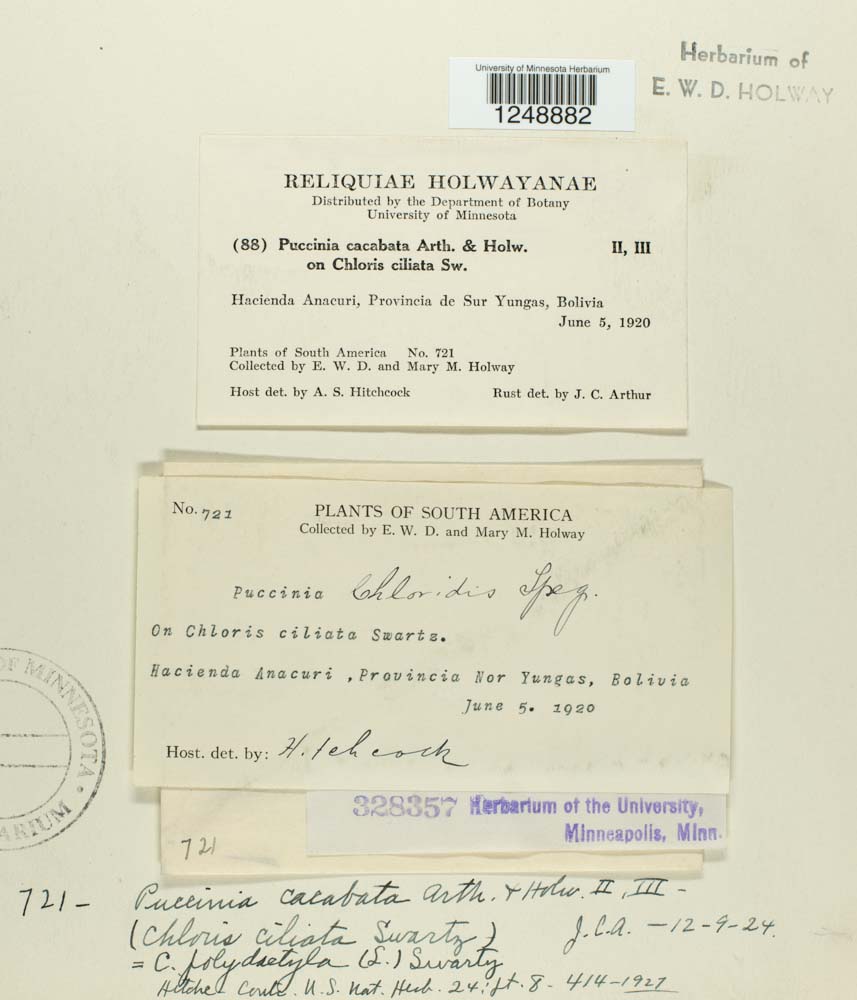 Herbarium of
E. W. D. HOLWAY
University of Minnesota Herbarium
1248882
RELIQUIAE HOLWAYANAE
Distributed by the Department of Botany
University of Minnesota
(88) Puccinia cacabata Arth. & Holw. II, III
on Chloris ciliata Sw.
Hacienda Anacuri, Provincia de Sur Yungas, Bolivia
June 5, 1920
Plants of South America No. 721
Collected by E. W. D. and Mary M. Holway
Host det. by A. S. Hitchcock Rust det. by J. C. Arthur
No. 721 PLANTS OF SOUTH AMERICA
Collected by E. W. D. and Mary M. Holway
Puccinia Chloridis Speg.
On Chloris ciliata Swartz.
Hacienda Anacuri , Provincia Nor Yungas, Bolivia
June 5. 1920
Host. det. by: Hitchcock
OF MINNESOTA
ARIUM
328357 Herbarium of the University,
Minneapolis, Minn.
721
721 - Puccinia cacabata Arth. & Holw. II, III -
(Chloris ciliata Swartz) J.C.A. - 12-9-24.
= C. polydactyla (L.) Swartz
Hitchc. Contr. U.S. Nat. Herb. 24: pt. 8 - 414 - 1927